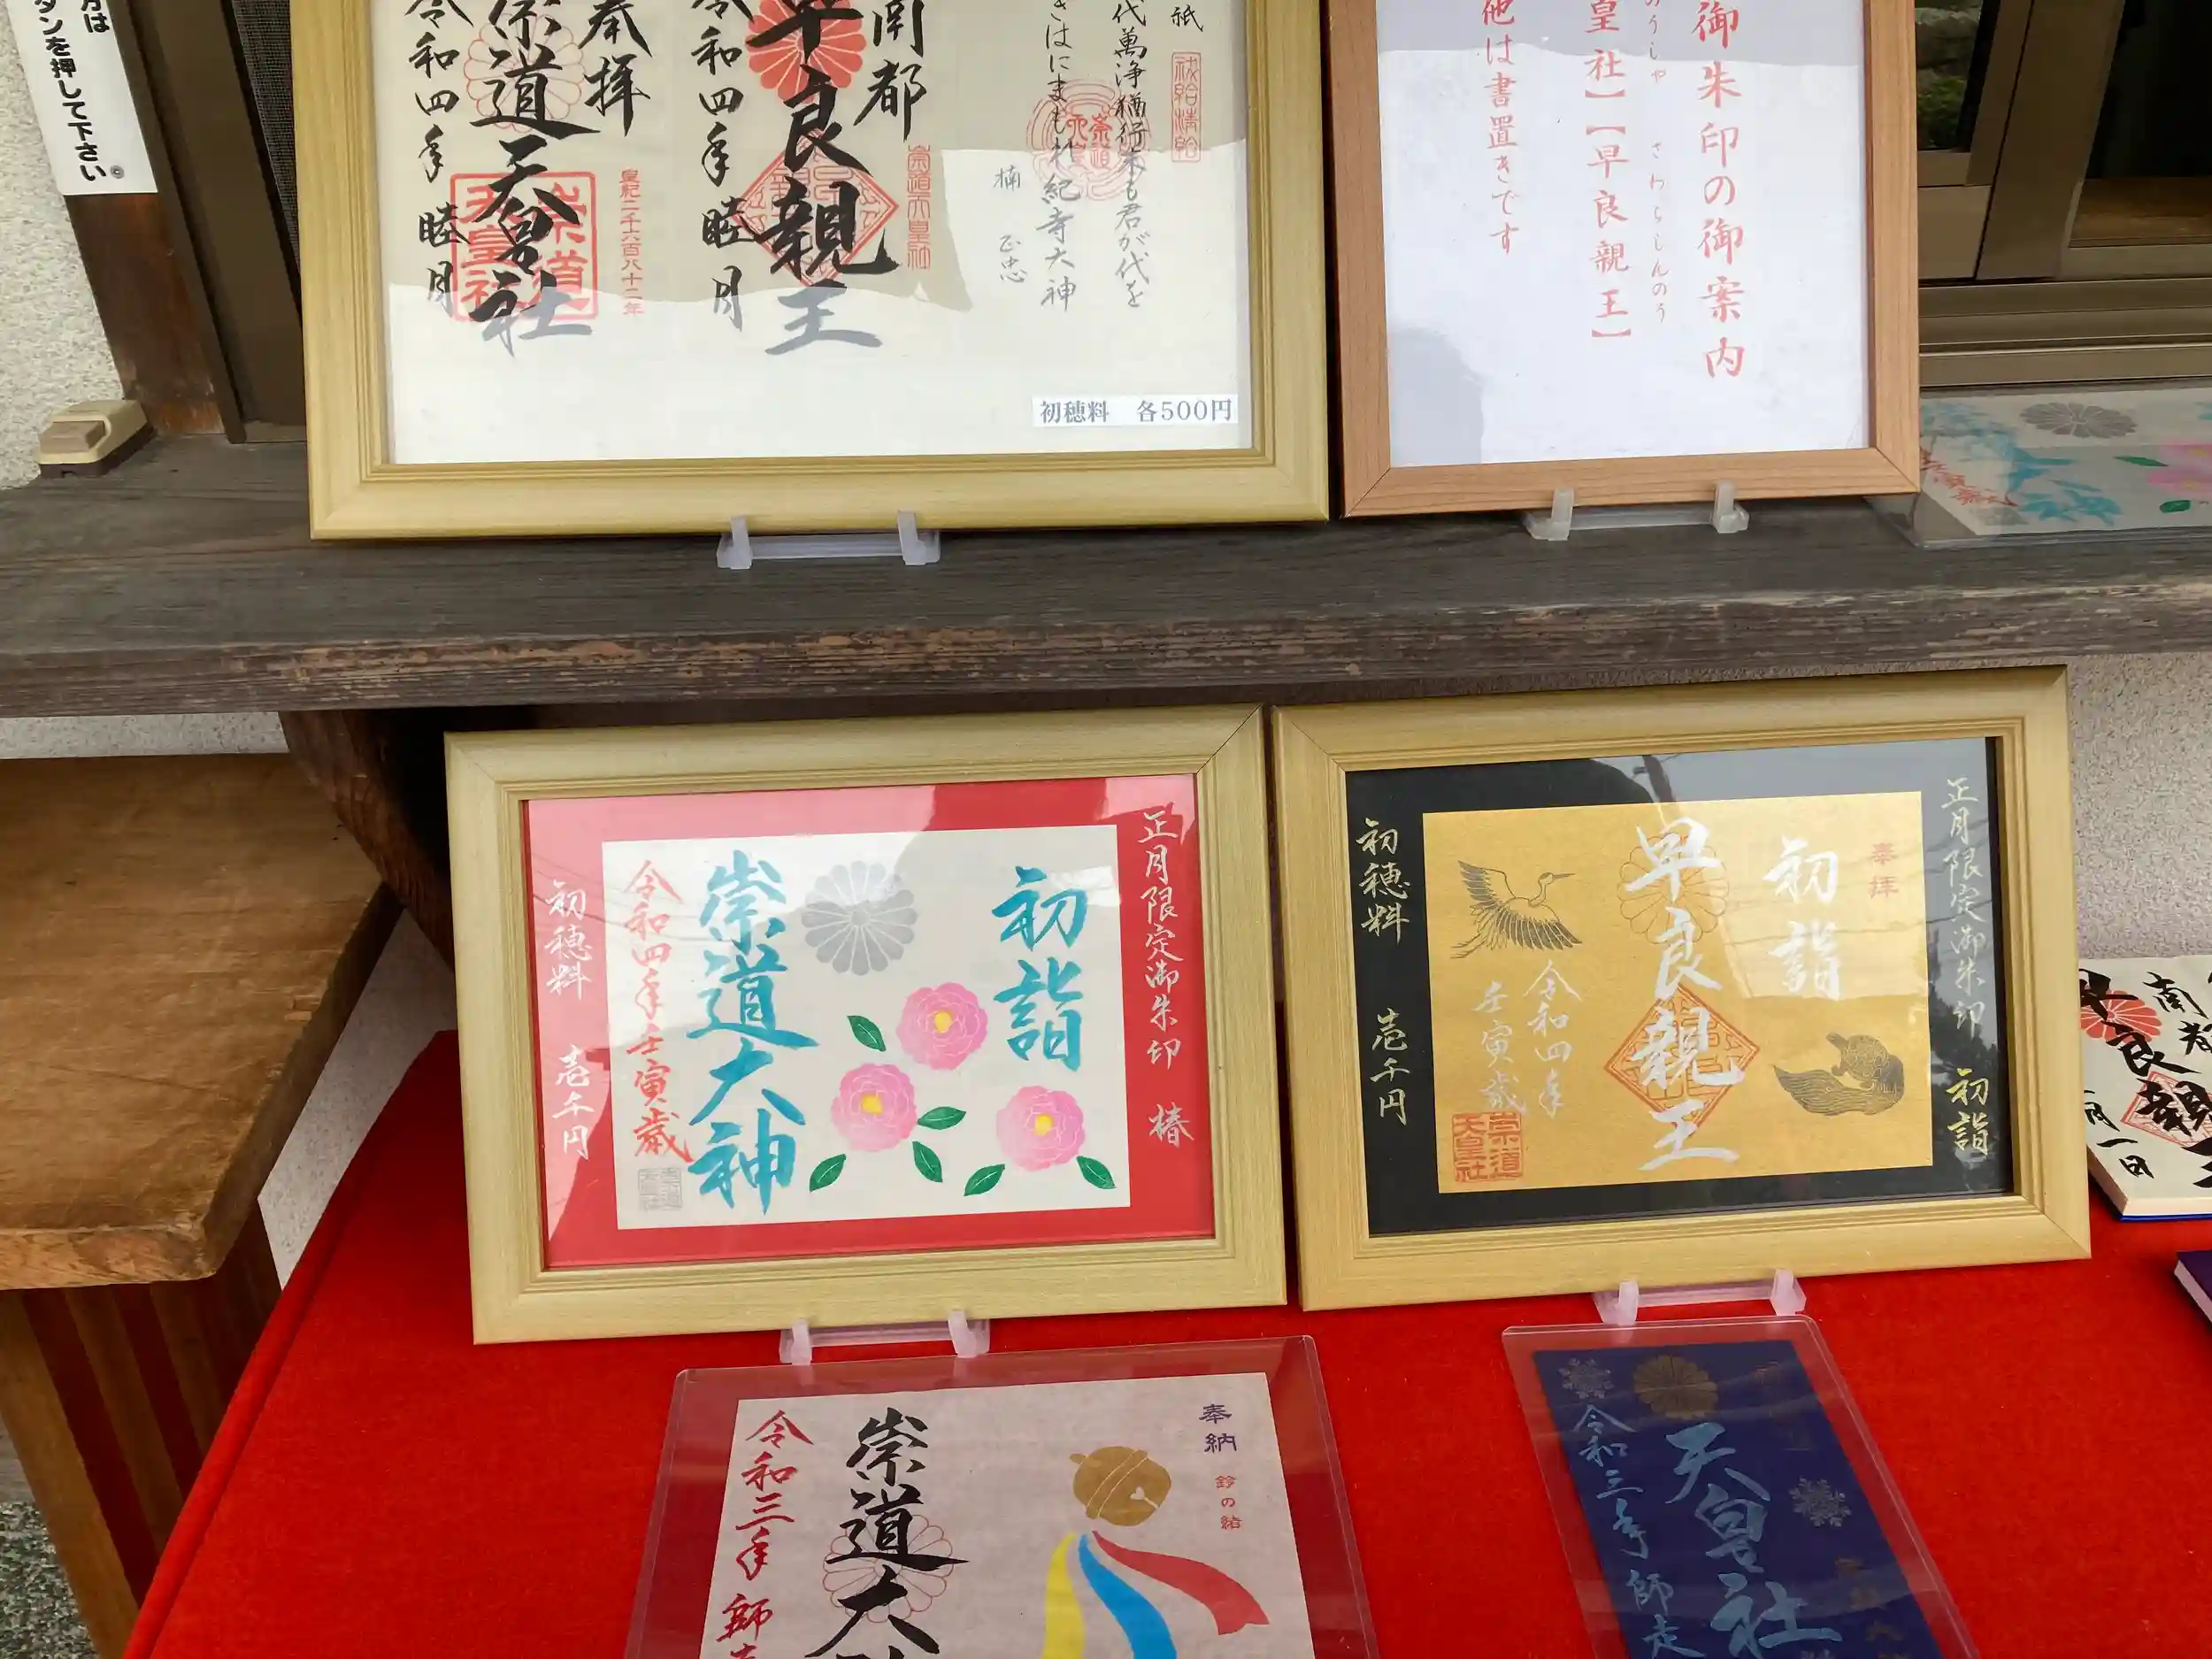 方は
タンを押して下さい。
奉拝
崇道天皇社
崇道天皇社
皇紀二千六百八十二年
令和四年 睦月
南都
早良親王
崇道天皇社
令和四年 睦月
祓給清給
代萬浄
も君が代を
きはにまもれ紀寺大神
楠 正忠
初穂料 各500円
御朱印の御案内
皇社】【早良親王】
のうじゃ さわらしんのう
他は書置きです
正月限定御朱印 椿
初詣
崇道大神
令和四年壬寅歳
初穂料 壱千円
正月限定御朱印 初詣
奉拝
初詣
早良親王
令和四年
壬寅歳
崇道天皇社
初穂料 壱千円
奉納
鈴の緒
崇道大
令和三年 師
天皇社
令和三年 師走
南都
良親
月一日